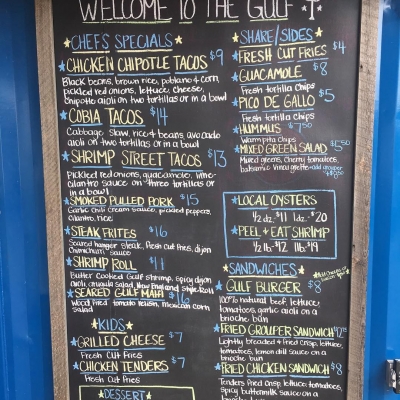 WELCOME TO THE GULF
CHEF'S SPECIALS
CHICKEN CHIPOTLE TACOS $9
Black beans, brown rice, poblano & corn,
pickled red onions, lettuce, cheese,
chipotle aioli on two tortillas or in a bowl
COBIA TACOS $14
Cabbage slaw, rice & beans, avocado
aioli on two tortillas or in a bowl
SHRIMP STREET TACOS $13
Pickled red onions, guacamole, lime-
cilantro sauce on three tortillas or
in a bowl
SMOKED PULLED PORK $15
Garlic chili cream sauce, pickled peppers,
cilantro, rice
STEAK FRITES $16
Seared hanger steak, fresh cut fries, dijon
chimichurri sauce
SHRIMP ROLL $11
Butter Cooked Gulf shrimp, spicy dijon
aioli, arugula salad, New England Style Roll
SEARED GULF MAHI $16
Wood fired tomato relish, mexican corn
salad
KIDS
GRILLED CHEESE $7
Fresh Cut Fries
CHICKEN TENDERS $7
Fresh Cut Fries
DESSERT
SHARE/SIDES
FRESH CUT FRIES $4
GUACAMOLE $8
Fresh tortilla Chips
PICO DE GALLO $5
Fresh tortilla Chips
HUMMUS $7.50
Warm pita Chips
MIXED GREEN SALAD
Mixed greens, Cherry tomatoes,
balsamic vinaigrette
LOCAL OYSTERS
1/2 dz. $11 1dz. $20
PEEL & EAT SHRIMP
1/2 lb. $12 1lb. $19
SANDWICHES
GULF BURGER $8
100% natural beef, lettuce,
tomatoes, garlic aioli on a
brioche bun
FRIED GROUPER SANDWICH
Lightly breaded & fried crisp, lettuce,
tomatoes, lemon dill sauce on a
brioche bun
FRIED CHICKEN SANDWICH $8
Tenders fried crisp, lettuce, tomatoes,
spicy buttermilk sauce on a